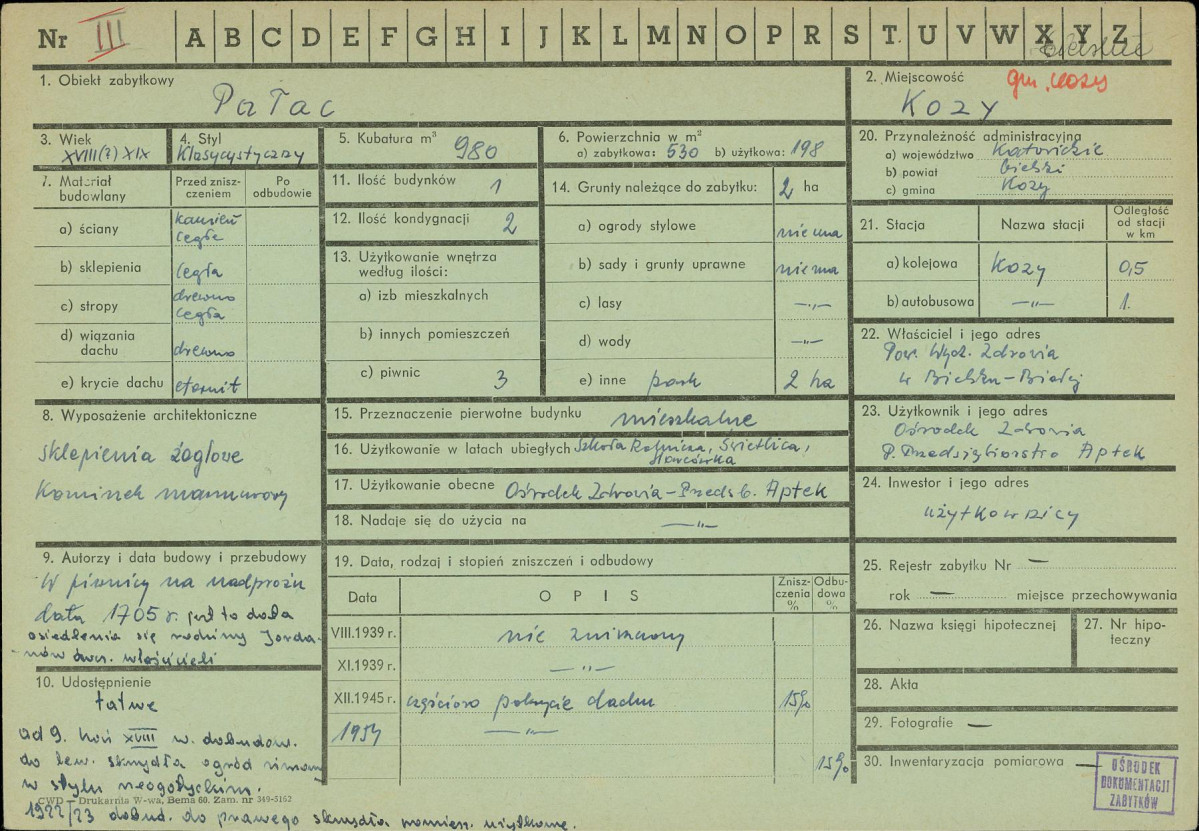 Nr III A B C D E F G H I J K L M N O P R S T U V W X Y Z
bielskie
1. Obiekt zabytkowy
Pałac
2. Miejscowość gm. Kozy
Kozy
3. Wiek
XVIII(?) XIX
4. Styl
Klasycystyczny
5. Kubatura m³ 980
6. Powierzchnia w m²
a) zabytkowa: 530 b) użytkowa: 198
20. Przynależność administracyjna
a) województwo Katowickie
b) powiat bielski
c) gmina Kozy
7. Materiał budowlany
Przed zniszczeniem
Po odbudowie
a) ściany kamień cegła
b) sklepienia cegła
c) stropy drewno cegła
d) wiązania dachu drewno
e) krycie dachu eternit
11. Ilość budynków 1
12. Ilość kondygnacji 2
13. Użytkowanie wnętrza
według ilości:
a) izb mieszkalnych
b) innych pomieszczeń
c) piwnic 3
14. Grunty należące do zabytku: 2 ha
a) ogrody stylowe nie ma
b) sady i grunty uprawne nie ma
c) lasy —„—
d) wody —„—
e) inne park 2 ha
21. Stacja
Nazwa stacji
Odległość
od stacji
w km
a) kolejowa Kozy 0,5
b) autobusowa —„— 1.
22. Właściciel i jego adres
Pow. Wydz. Zdrowia
w Bielsku-Białej
8. Wyposażenie architektoniczne
Sklepienia żaglowe
Kominek marmurowy
15. Przeznaczenie pierwotne budynku mieszkalne
16. Użytkowanie w latach ubiegłych Szkoła Rolnicza, Świetlica,
17. Użytkowanie obecne Ośrodek Zdrowia – Przedsb. Aptek
18. Nadaje się do użycia na —„—
23. Użytkownik i jego adres
Ośrodek Zdrowia
P. Przedsiębiorstwo Aptek
24. Inwestor i jego adres
użytkownicy
9. Autorzy i data budowy i przebudowy
W piwnicy na nadprożu
data 1705 r. jest to data
osiedlenia się rodziny Jorda-
nów ówcz. właścicieli
19. Data, rodzaj i stopień zniszczeń i odbudowy
Data
OPIS
Zniszczenia %
Odbudowa %
VIII.1939 r. nie zniszczony
XI.1939 r. —„—
XII.1945 r. częściowo pokrycie dachu 15%
1954 —„— 15%
25. Rejestr zabytku Nr —
rok — miejsce przechowywania
26. Nazwa księgi hipotecznej
27. Nr hipoteczny
28. Akta
29. Fotografie —
30. Inwentaryzacja pomiarowa —
10. Udostępnienie
łatwe
ad 9. koń XVIII w. dobudow.
do lew. skrzydła ogród zimow
w stylu neogotyckim.
CWD — Drukarnia W-wa, Bema 60. Zam. nr 349-5162
1922/23 dobud. do prawego skrzydła pomiesz. użytkowe.
OŚRODEK
DOKUMENTACJI
ZABYTKÓW